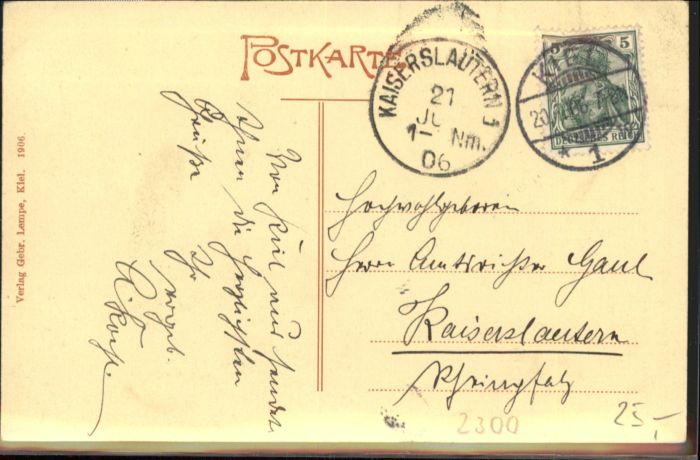 POSTKARTE
KAISERSLAUTERN 1
21
JU
1- Nm.
06
KIEL
20. 06. 7-8
* 1
5
DEUTSCHES REICH
Von Kiel aus sendet
Ihnen die herzlichsten
Grüße
Ihr
ergeb.
Hochwohlgeboren
Herrn Amtsrichter Gaul
Kaiserslautern
Rheinpfalz
2300
25,-
Verlag Gebr. Lempe, Kiel. 1906.